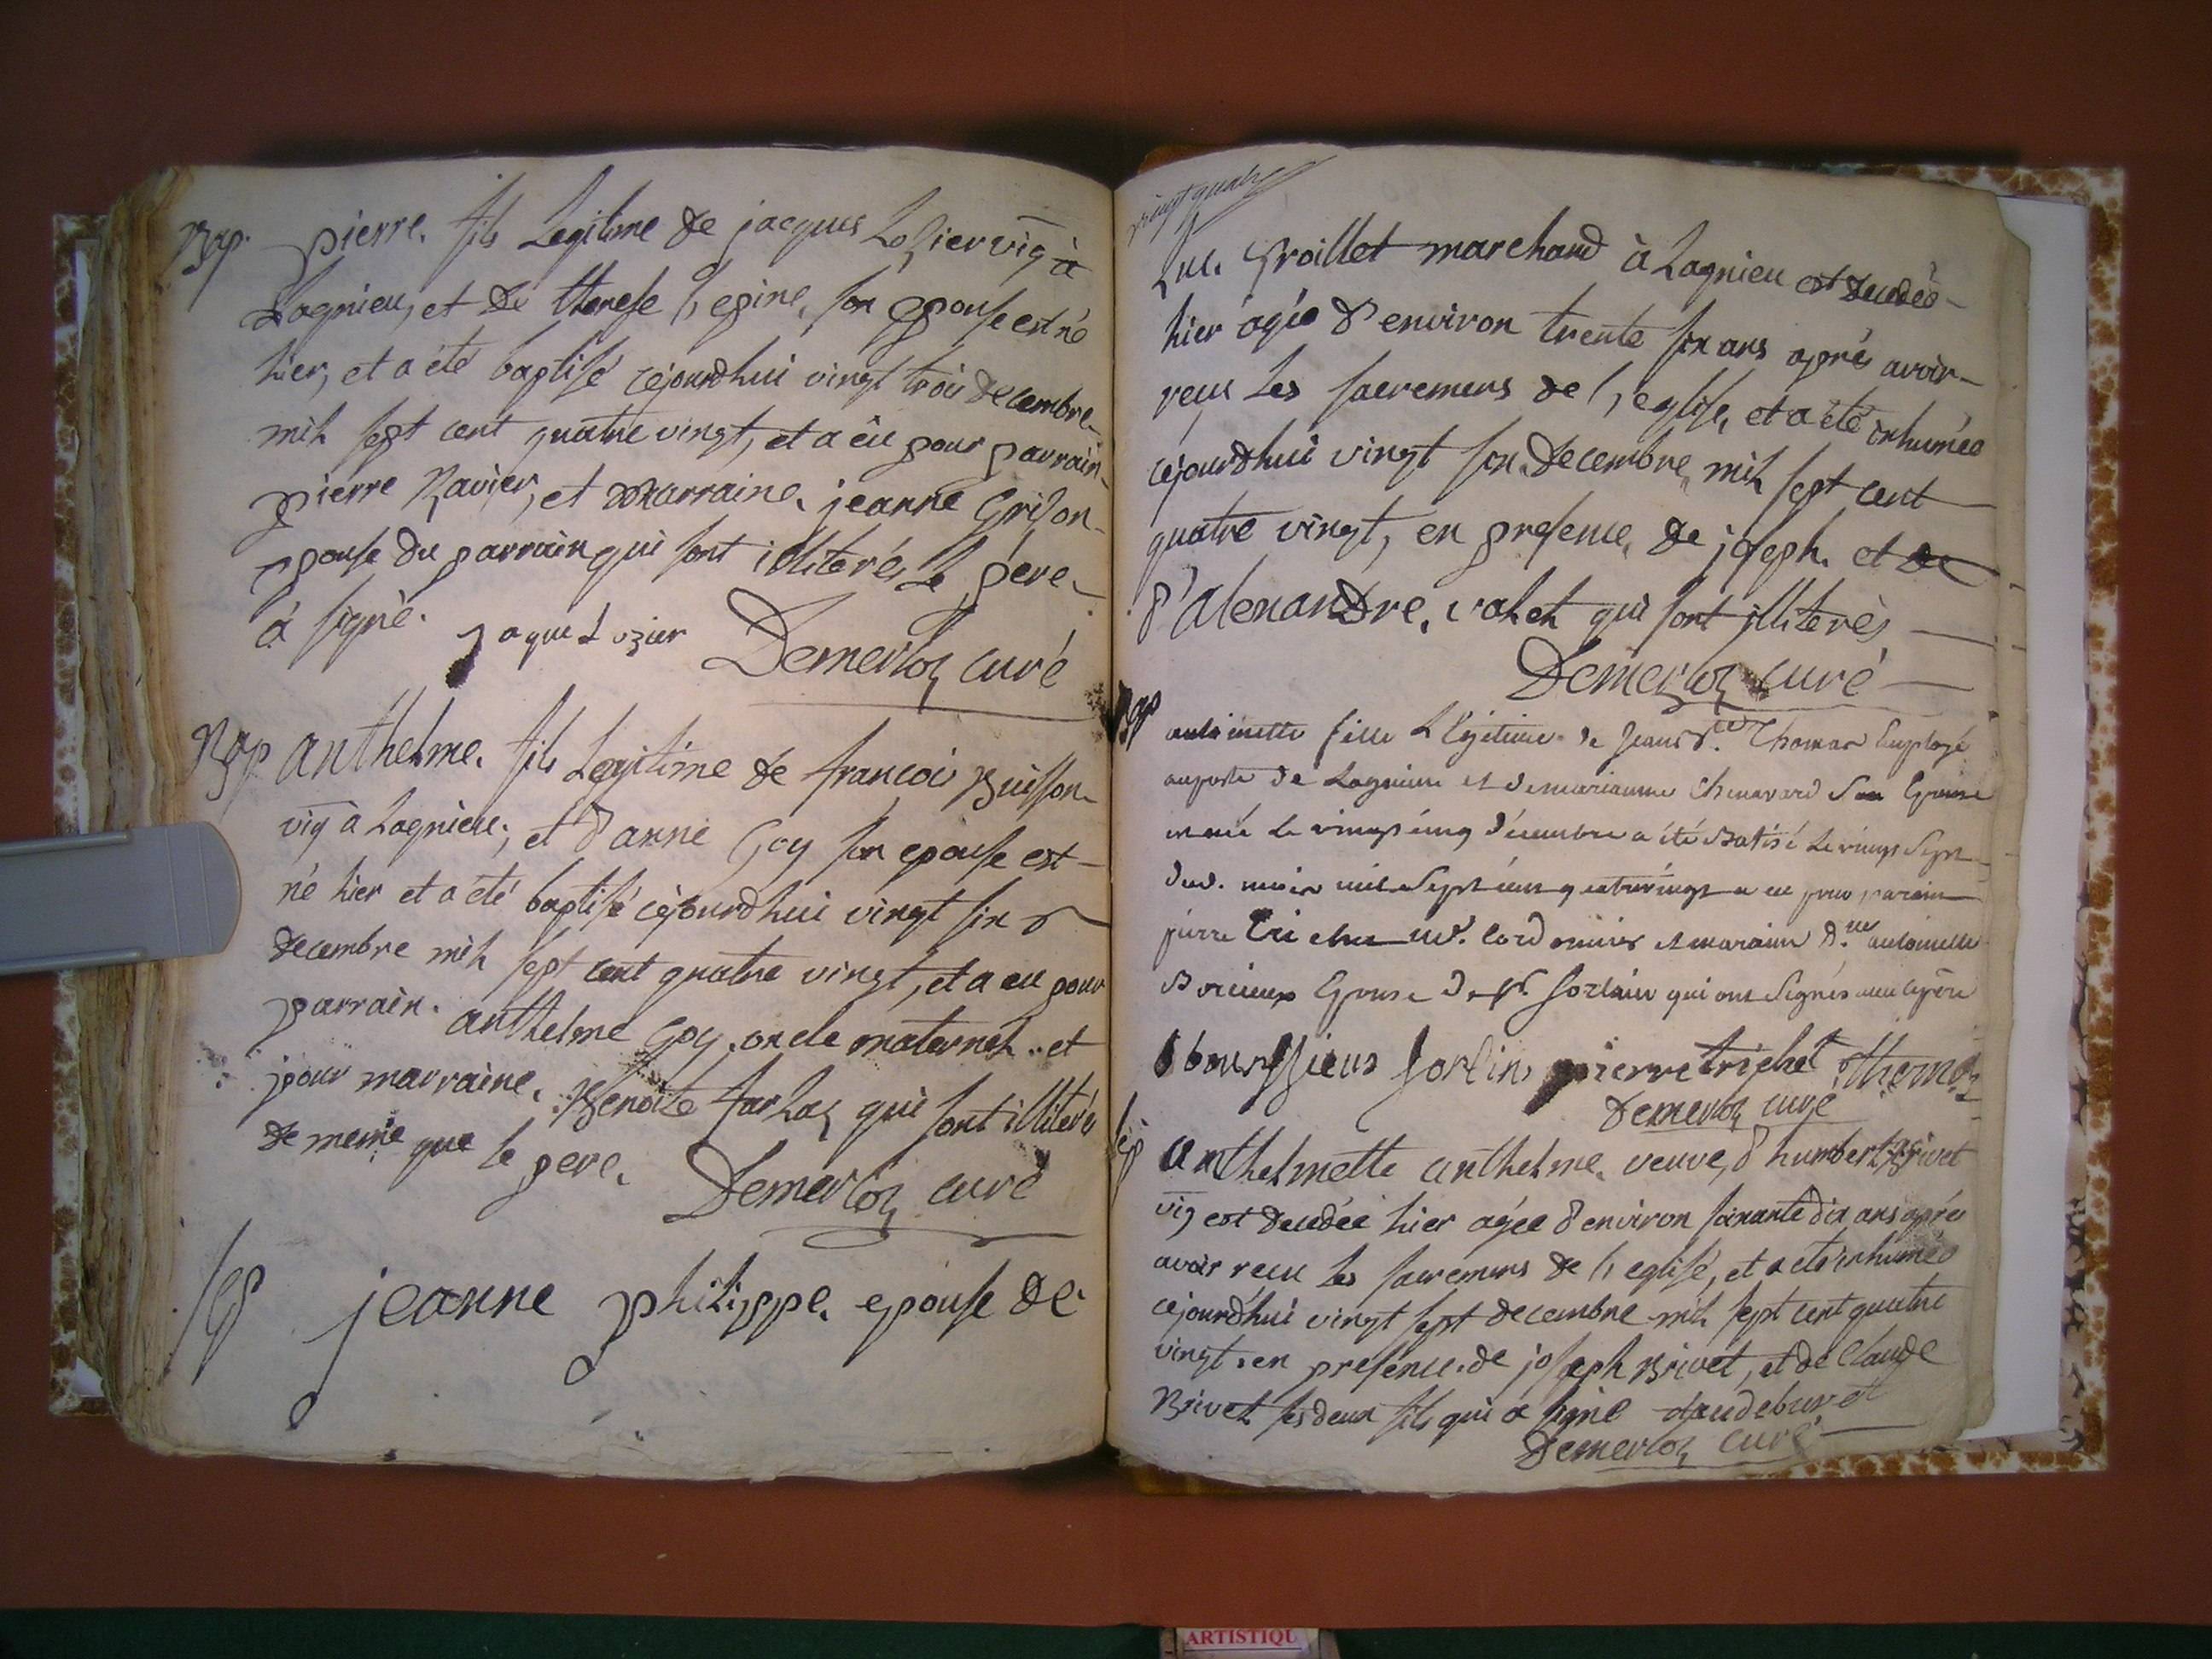 Bap. pierre. fils Legitime de jacques Lozier vig à
Lagnieu, et de therese l'epine, son epouse est né
hier, et a été baptisé cejourdhui vingt trois decembre
mil sept cent quatre vingt, et a eû pour parrain
pierre Ravier, et marraine, jeanne Grison
epouse du parrain qui sont illiterés Le pere
à signé. Jaque Lozier Demerloz curé
Bap anthelme. fils Legitime de francois Buisson
vig à Lagnieu; et d'anne Goy son epouse est
né hier et a été baptisé cejourdhui vingt six
decembre mil sept cent quatre vingt, et a eu pour
parrain. anthelme Goy. oncle maternel .. et
pour marraine. Benoite qui sont illiterés
de meme que le pere. Demerloz curé
Sep jeanne philippe. epouse de
vingt quatre
Luc. Groillet marchand à Lagnieu est decedée
hier agée d'environ trente six ans aprés avoir
recu Les sacremens de l'eglise, et a été inhumée
cejourdhui vingt six Decembre mil sept cent
quatre vingt, en presence, de joseph. et de
d'alexandre. valet qui sont illiterés
Demerloz curé
Bap antoinette fille Légitime de Jean Thomas Employé
au poste de Lagnieu et de marianne Chenavard Son Epouse
est née le vingt cinq décembre a été Batisé Le vingt Sept
dud. mois mil Sept cens quatrevingt a eu pour parain
pierre Trichet cordonnier et maraine antoinette
Epouse de Sr. forlin qui ont Signés avec le père
forlin pierre trichet thomas
Demerloz curé
Sep anthelmette anthelme. veuve, d'humbert Brivet
vig est decedée hier agée d'environ soixante dix ans aprés
avoir recu les sacremens de l'eglise, et a été inhumée
cejourd'hui vingt sept decembre mil sept cent quatre
vingt. en presence. de joseph Brivet, et de Claude
Brivet ses deux fils qui a signé claude brivet
Demerloz curé
ARTISTIQU